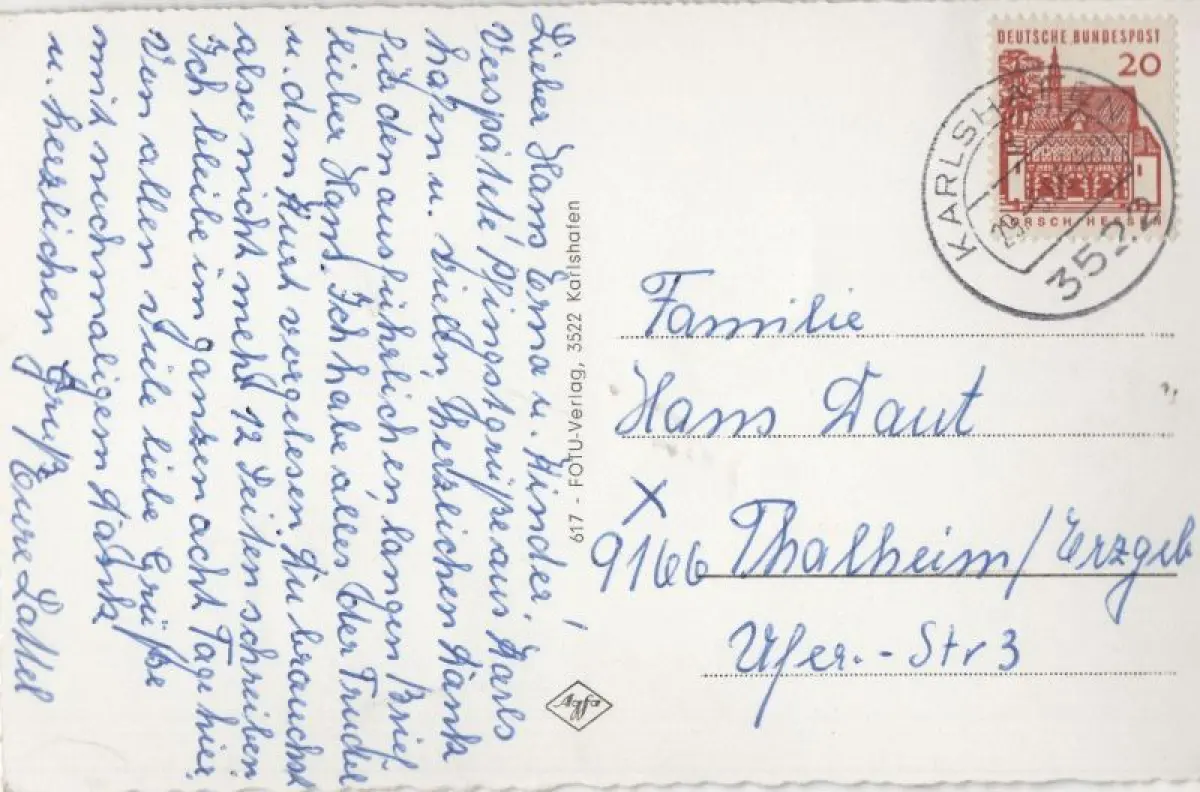 Lieber Hans Erna u. Kinder!
Verspätete Pfingstgrüße aus Karls
hafen u. vielen, herzlichen Dank
für den ausführlichen, langen Brief
lieber Hans. Ich habe alles der Trudel
u. dem Kurt vorgelesen. Du brauchst
also nicht mehr 12 Seiten schreiben.
Ich bleibe im ganzen acht Tage hier.
Von allen viele liebe Grüße
mit nochmaligem Dank
u. herzlichen Gruß Eure Dattel
617 - FOTU-Verlag, 3522 Karlshafen
Agfa
DEUTSCHE BUNDESPOST
20
LORSCH HESSEN
KARLSHAFEN
3522
Familie
Hans Daut
X
9166 Thalheim/Erzgeb
Ufer.-Str 3